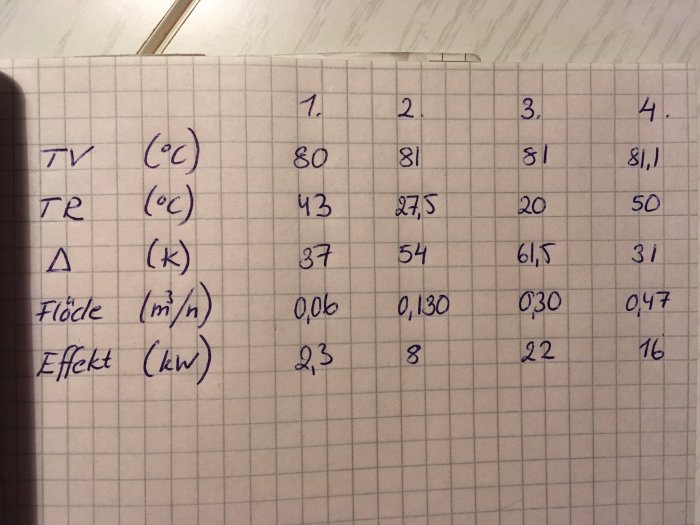 1. 2. 3. 4.
TV (°C) 80 81 81 81,1
TR (°C) 43 27,5 20 50
Δ (K) 37 54 61,5 31
Flöde (m³/h) 0,06 0,130 0,30 0,47
Effekt (kW) 2,3 8 22 16